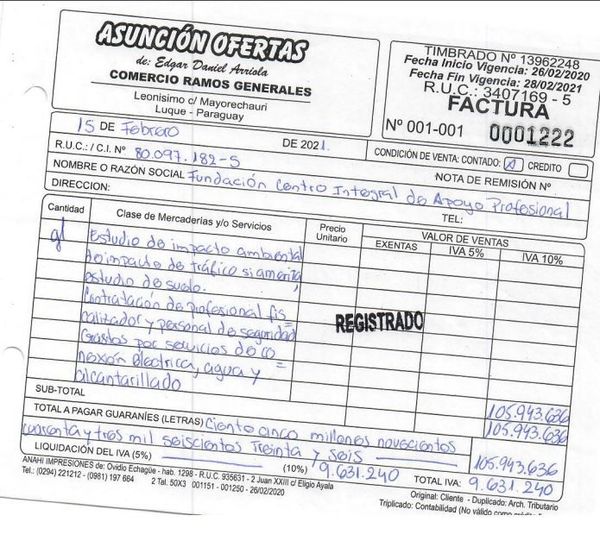 ASUNCIÓN OFERTAS
de: Edgar Daniel Arriola
COMERCIO RAMOS GENERALES
Leonisimo c/ Mayorechauri
Luque - Paraguay
TIMBRADO Nº 13962248
Fecha Inicio Vigencia: 26/02/2020
Fecha Fin Vigencia: 28/02/2021
R.U.C.: 3407169 - 5
FACTURA
Nº 001-001 0001222
15 DE Febrero DE 2021.
CONDICIÓN DE VENTA: CONTADO: X CREDITO
R.U.C.: / C.I. Nº 80.097.182-5
NOTA DE REMISIÓN Nº
NOMBRE O RAZÓN SOCIAL Fundación Centro Integral de Apoyo Profesional
DIRECCION: TEL:
Cantidad Clase de Mercaderías y/o Servicios Precio Unitario VALOR DE VENTAS
EXENTAS IVA 5% IVA 10%
gl Estudio de impacto ambiental
de impacto de tráfico si amerita,
estudio de suelo.
Contratación de profesional fis=
calizador y personal de seguridad
Gastos por servicios de co=
nexión electrica, agua y
alcantarillado
REGISTRADO
105.943.636
SUB-TOTAL 105.943.636
TOTAL A PAGAR GUARANÍES (LETRAS) Ciento cinco millones novecientos
cuarenta y tres mil seiscientos treinta y seis 105.943.636
LIQUIDACIÓN DEL IVA (5%) (10%) 9.631.240 TOTAL IVA: 9.631.240
ANAHI IMPRESIONES de: Ovidio Echagüe - hab. 1298 - R.U.C. 935631 - 2 Juan XXIII c/ Eligio Ayala
Tel.: (0294) 221212 - (0981) 197 664 2 Tal. 50X3 001151 - 001250 - 26/02/2020
Original: Cliente - Duplicado: Arch. Tributario
Triplicado: Contabilidad (No válido como